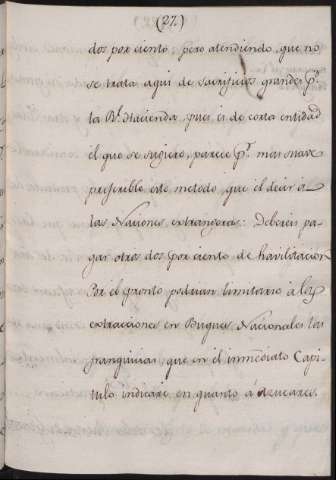 (27)
dos por ciento; pero atendiendo, que no
se trata aqui de sacrificios grandes p.ª
la R.l Hacienda, pues es de corta entidad
el que se sugiere, parece p.r mas suave
preferible este metodo, que el decir á
las Naciones extrangeras: Debereis pa-
gar otros dos por ciento de havilitacion
Por el pronto podrian limitarse á las
extracciones en Buques Nacionales las
franquicias, que en el immediato Capi-
tulo indicaré, en quanto á Azucares.